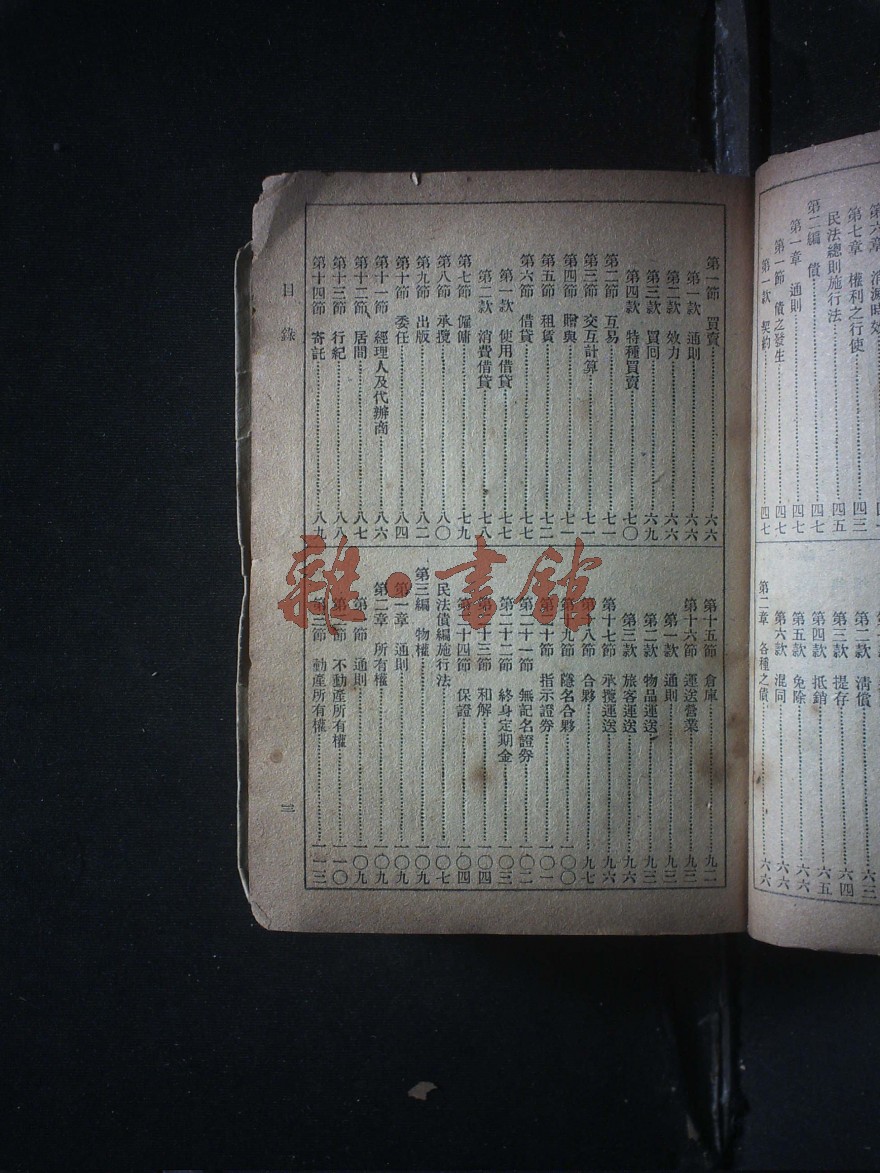 第六章 消滅時效
第七章 權利之行使……四三
民法總則施行法……四五
第二編 債……四七
第一章 通則……四七
第一節 債之發生……四七
第一款 契約……四七
第二款 清償……六三
第三款 提存……六四
第四款 抵銷……六五
第五款 免除……六六
第六款 混同……六六
第二章 各種之債……六六
第一節 買賣……六六
第一款 通則……六六
第二款 效力……六六
第三款 買回……六九
第四款 特種買賣……七〇
第二節 互易……七一
第三節 交互計算……七一
第四節 贈與……七一
第五節 租賃……七二
第六節 借貸……七七
第一款 使用借貸……七七
第二款 消費借貸……七八
第七節 僱傭……七九
第八節 承攬……八〇
第九節 出版……八二
第十節 委任……八四
第十一節 經理人及代辦商……八六
第十二節 居間……八七
第十三節 行紀……八八
第十四節 寄託……八九
第十五節 倉庫……九二
第十六節 運送營業……九三
第一款 通則……九三
第二款 物品運送……九三
第三款 旅客運送……九六
第十七節 承攬運送……九六
第十八節 合夥……九七
第十九節 隱名合夥……一〇〇
第二十節 指示證券……一〇一
第二十一節 無記名證券……一〇二
第二十二節 終身定期金……一〇三
第二十三節 和解……一〇四
第二十四節 保證……一〇四
民法債編施行法……一〇七
第三編 物權……一〇九
第一章 通則……一〇九
第二章 所有權……一〇九
第一節 通則……一〇九
第二節 不動產所有權……一一〇
第三節 動產所有權……一一三
目錄
三
雜·書館